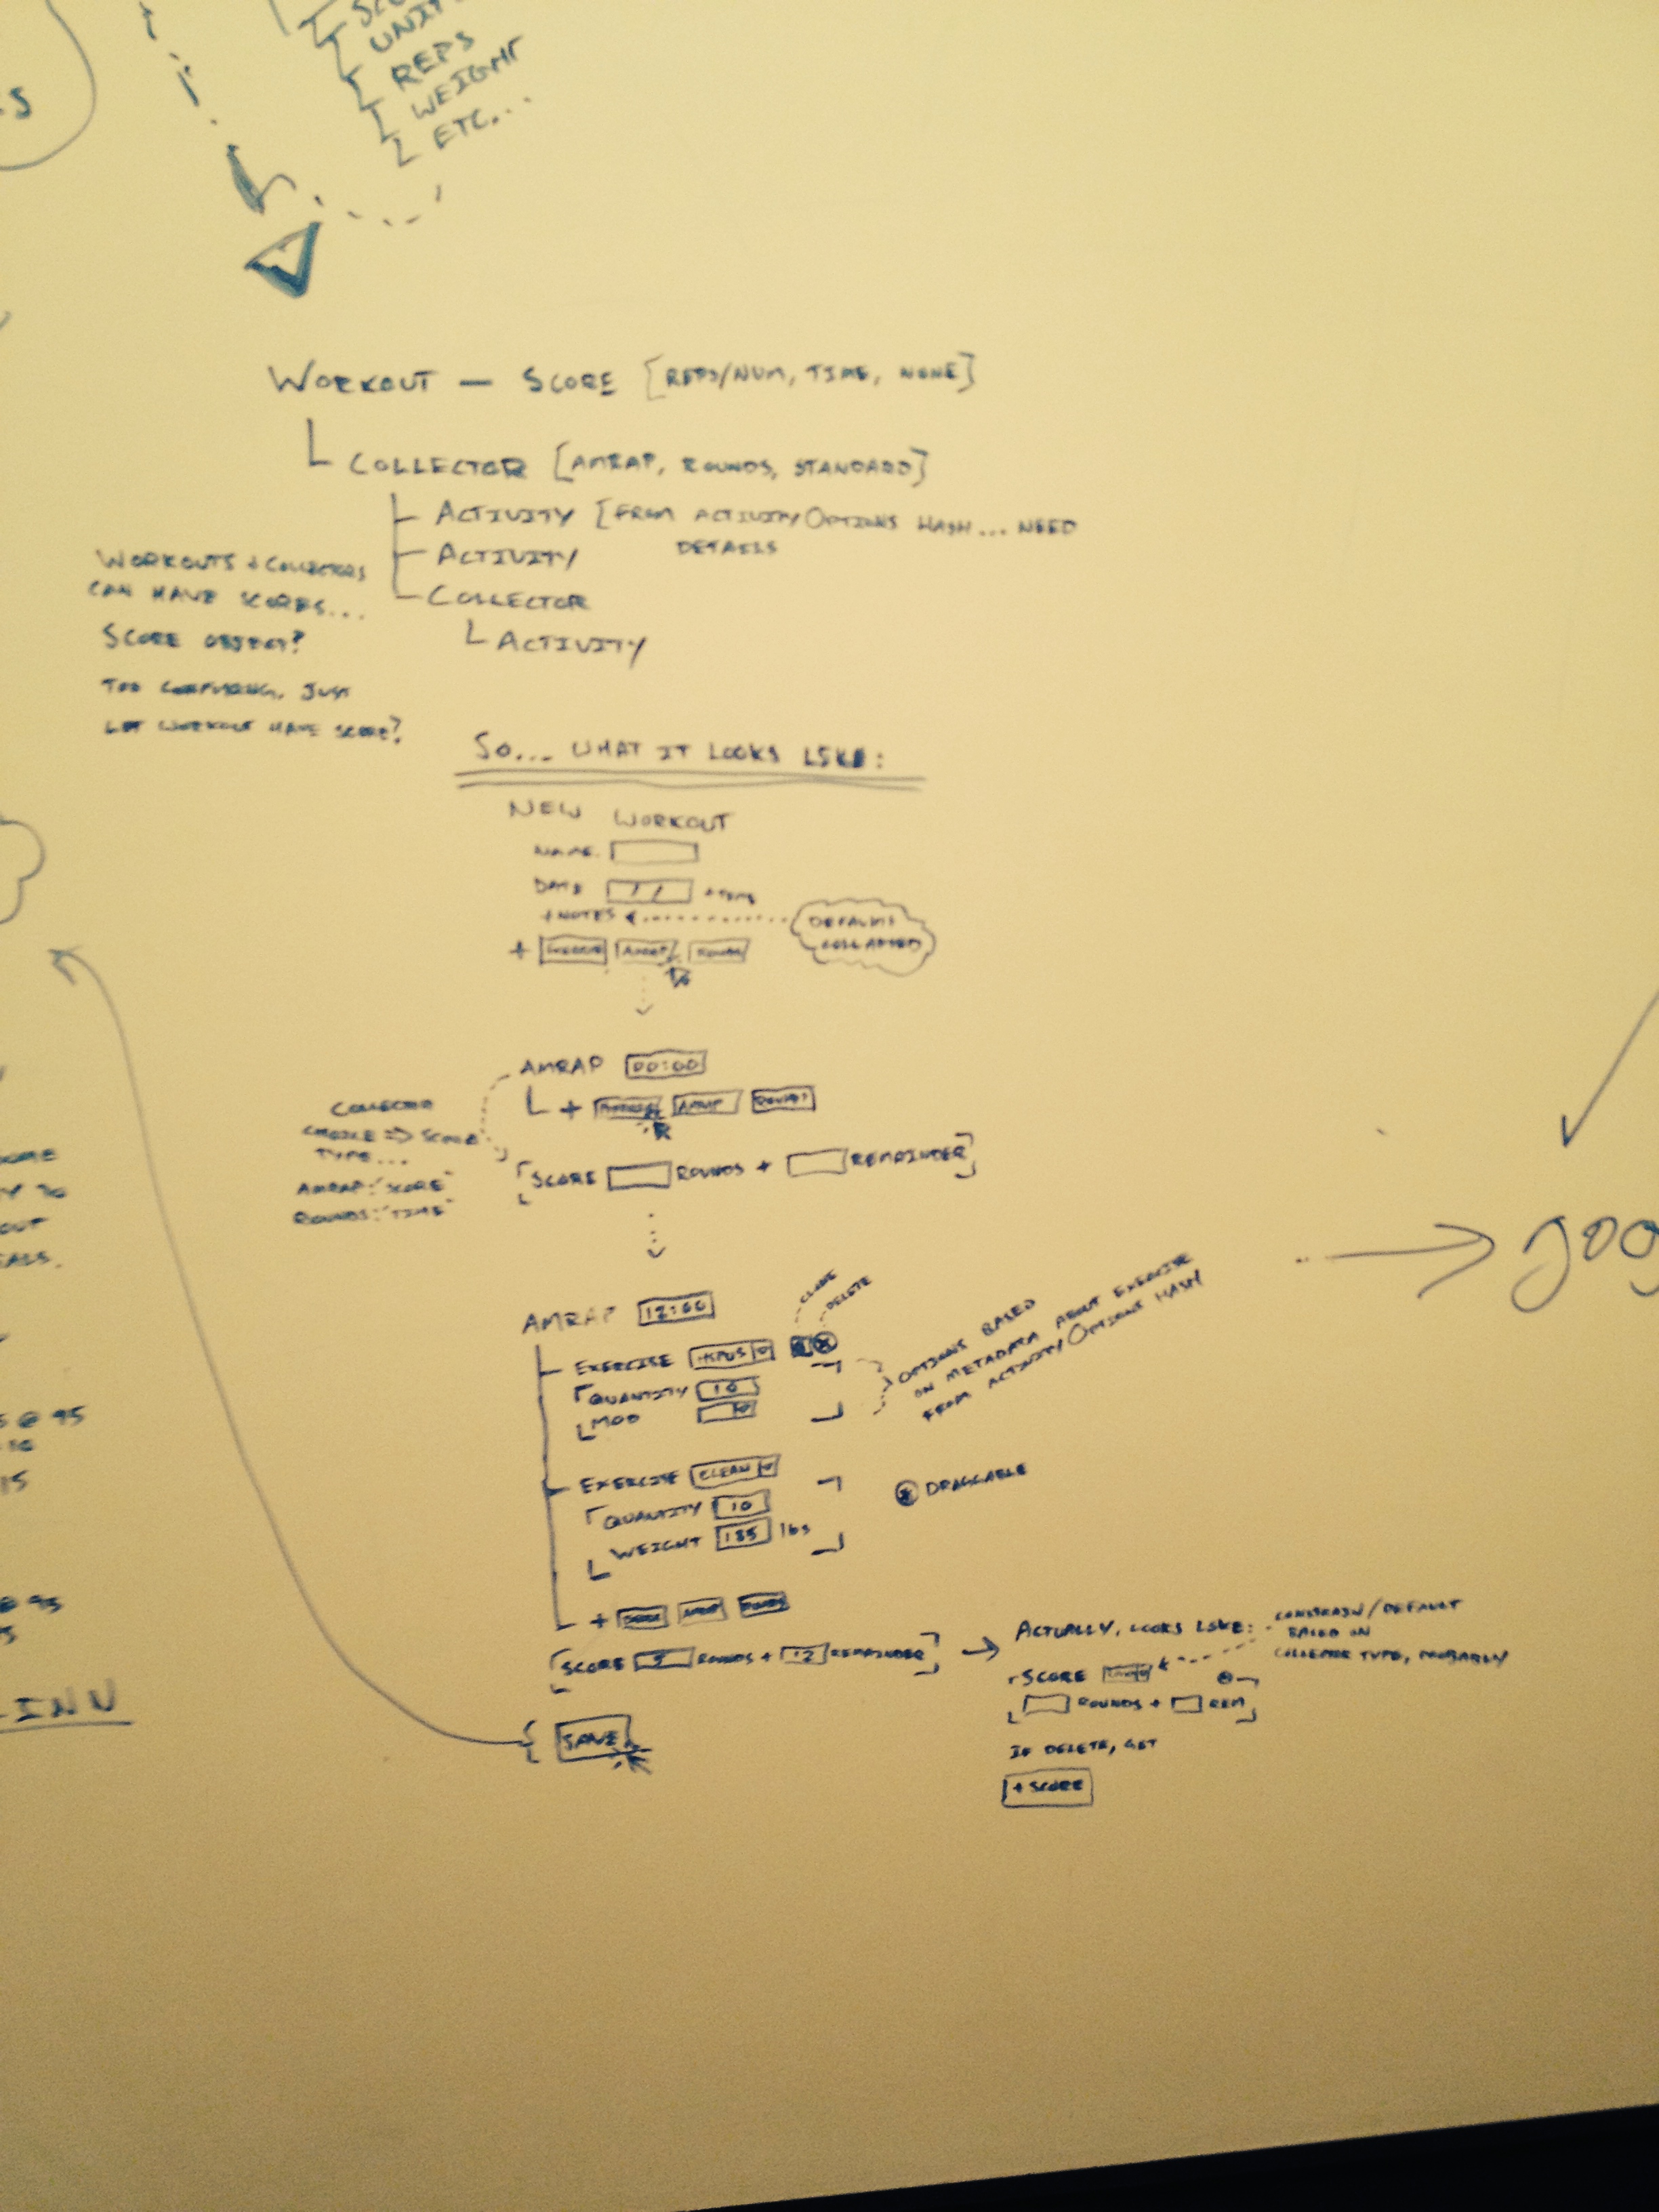 UNIT
REPS
WEIGHT
ETC...
S
WORKOUT — SCORE [REPS/NUM, TIME, NONE]
COLLECTOR [AMRAP, ROUNDS, STANDARD]
ACTIVITY [FROM ACTIVITYOPTIONS HASH... NEED
DETAILS
ACTIVITY
COLLECTOR
ACTIVITY
WORKOUTS + COLLECTORS
CAN HAVE SCORES...
SCORE OBJECT?
TOO CONFUSING. JUST
LET WORKOUT HAVE SCORE?
SO... WHAT IT LOOKS LIKE:
NEW WORKOUT
NAME
DATE / / + TIME
+ NOTES
DEFAULT
COLLAPSED
+ EXERCISE AMRAP ROUNDS
AMRAP 00:00
+ EXERCISE AMRAP ROUNDS
COLLECTOR
CHOICE => SCORE
TYPE...
AMRAP: "SCORE"
ROUNDS: "TIME"
[SCORE ROUNDS + REMAINDER]
AMRAP 12:00
CLONE
DELETE
EXERCISE HSPUS
QUANTITY 10
MOD
OPTIONS BASED
ON METADATA ABOUT EXERCISE
FROM ACTIVITYOPTIONS HASH
EXERCISE CLEAN
QUANTITY 10
WEIGHT 185 lbs
DRAGGABLE
+ AMRAP ROUNDS
[SCORE ROUNDS + 12 REMAINDER] →
ACTUALLY, LOOKS LIKE:
CONSTRAIN/DEFAULT
BASED ON
COLLECTOR TYPE, PROBABLY
SCORE
ROUNDS + REM
IF DELETE, GET
+ SCORE
SAVE
goo
OUT
@ 95
15
@ 95